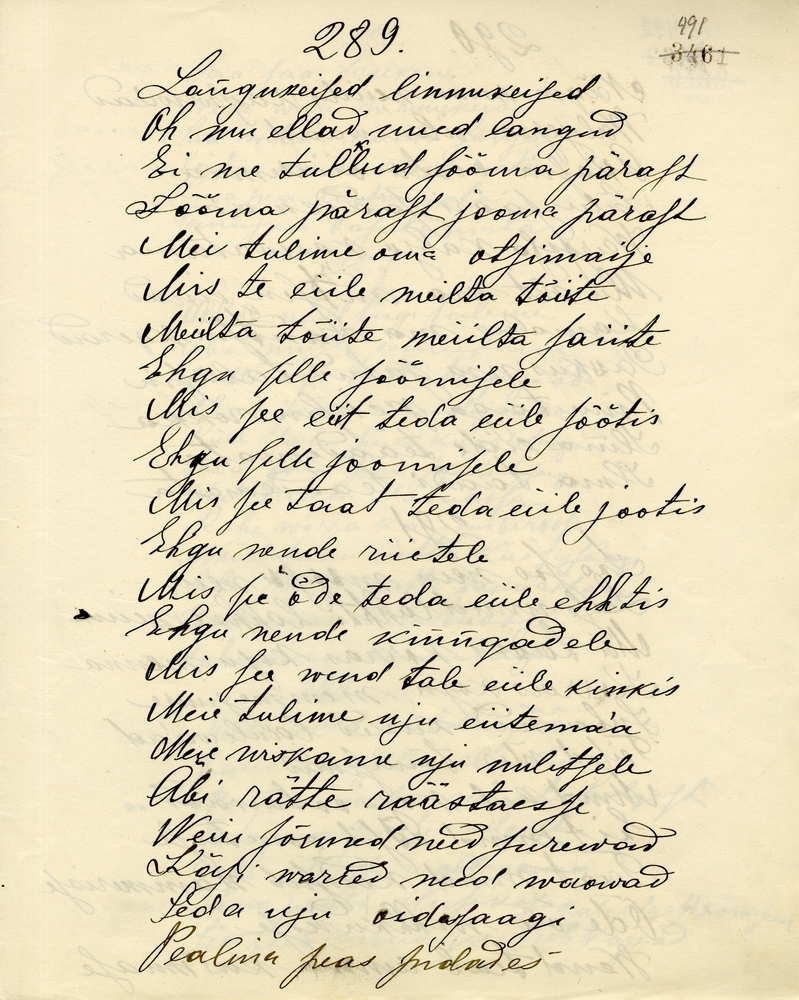 289.
491
3461
Langukeised linnukeised
Oh mu ellad uued langud
Ei me tullkud sööma pärast
Sööma pärast jooma pärast
Mei tulime oma otsimaije
Mis te eiile meilta tõiite
Meiilta tõiite meiilta saiite
Ehgu selle söömisele
Mis see eit teda eiile söötis
Ehgu selle joomisele
Mis see taat teda eiile jootis
Ehgu nende riietele
Mis se õde teda eiile ehhtis
Ehgu nende kiñgadele
Mis see wend tale eiile kinkis
Meie tulime uju eiitemäa
Meie wiskame uju nulitsele
Abi rätte räästaesse
Weiu sõrmed need surewad
Käsi warred need waowad
Seda uju oidasaagi
Pealina peas pidades